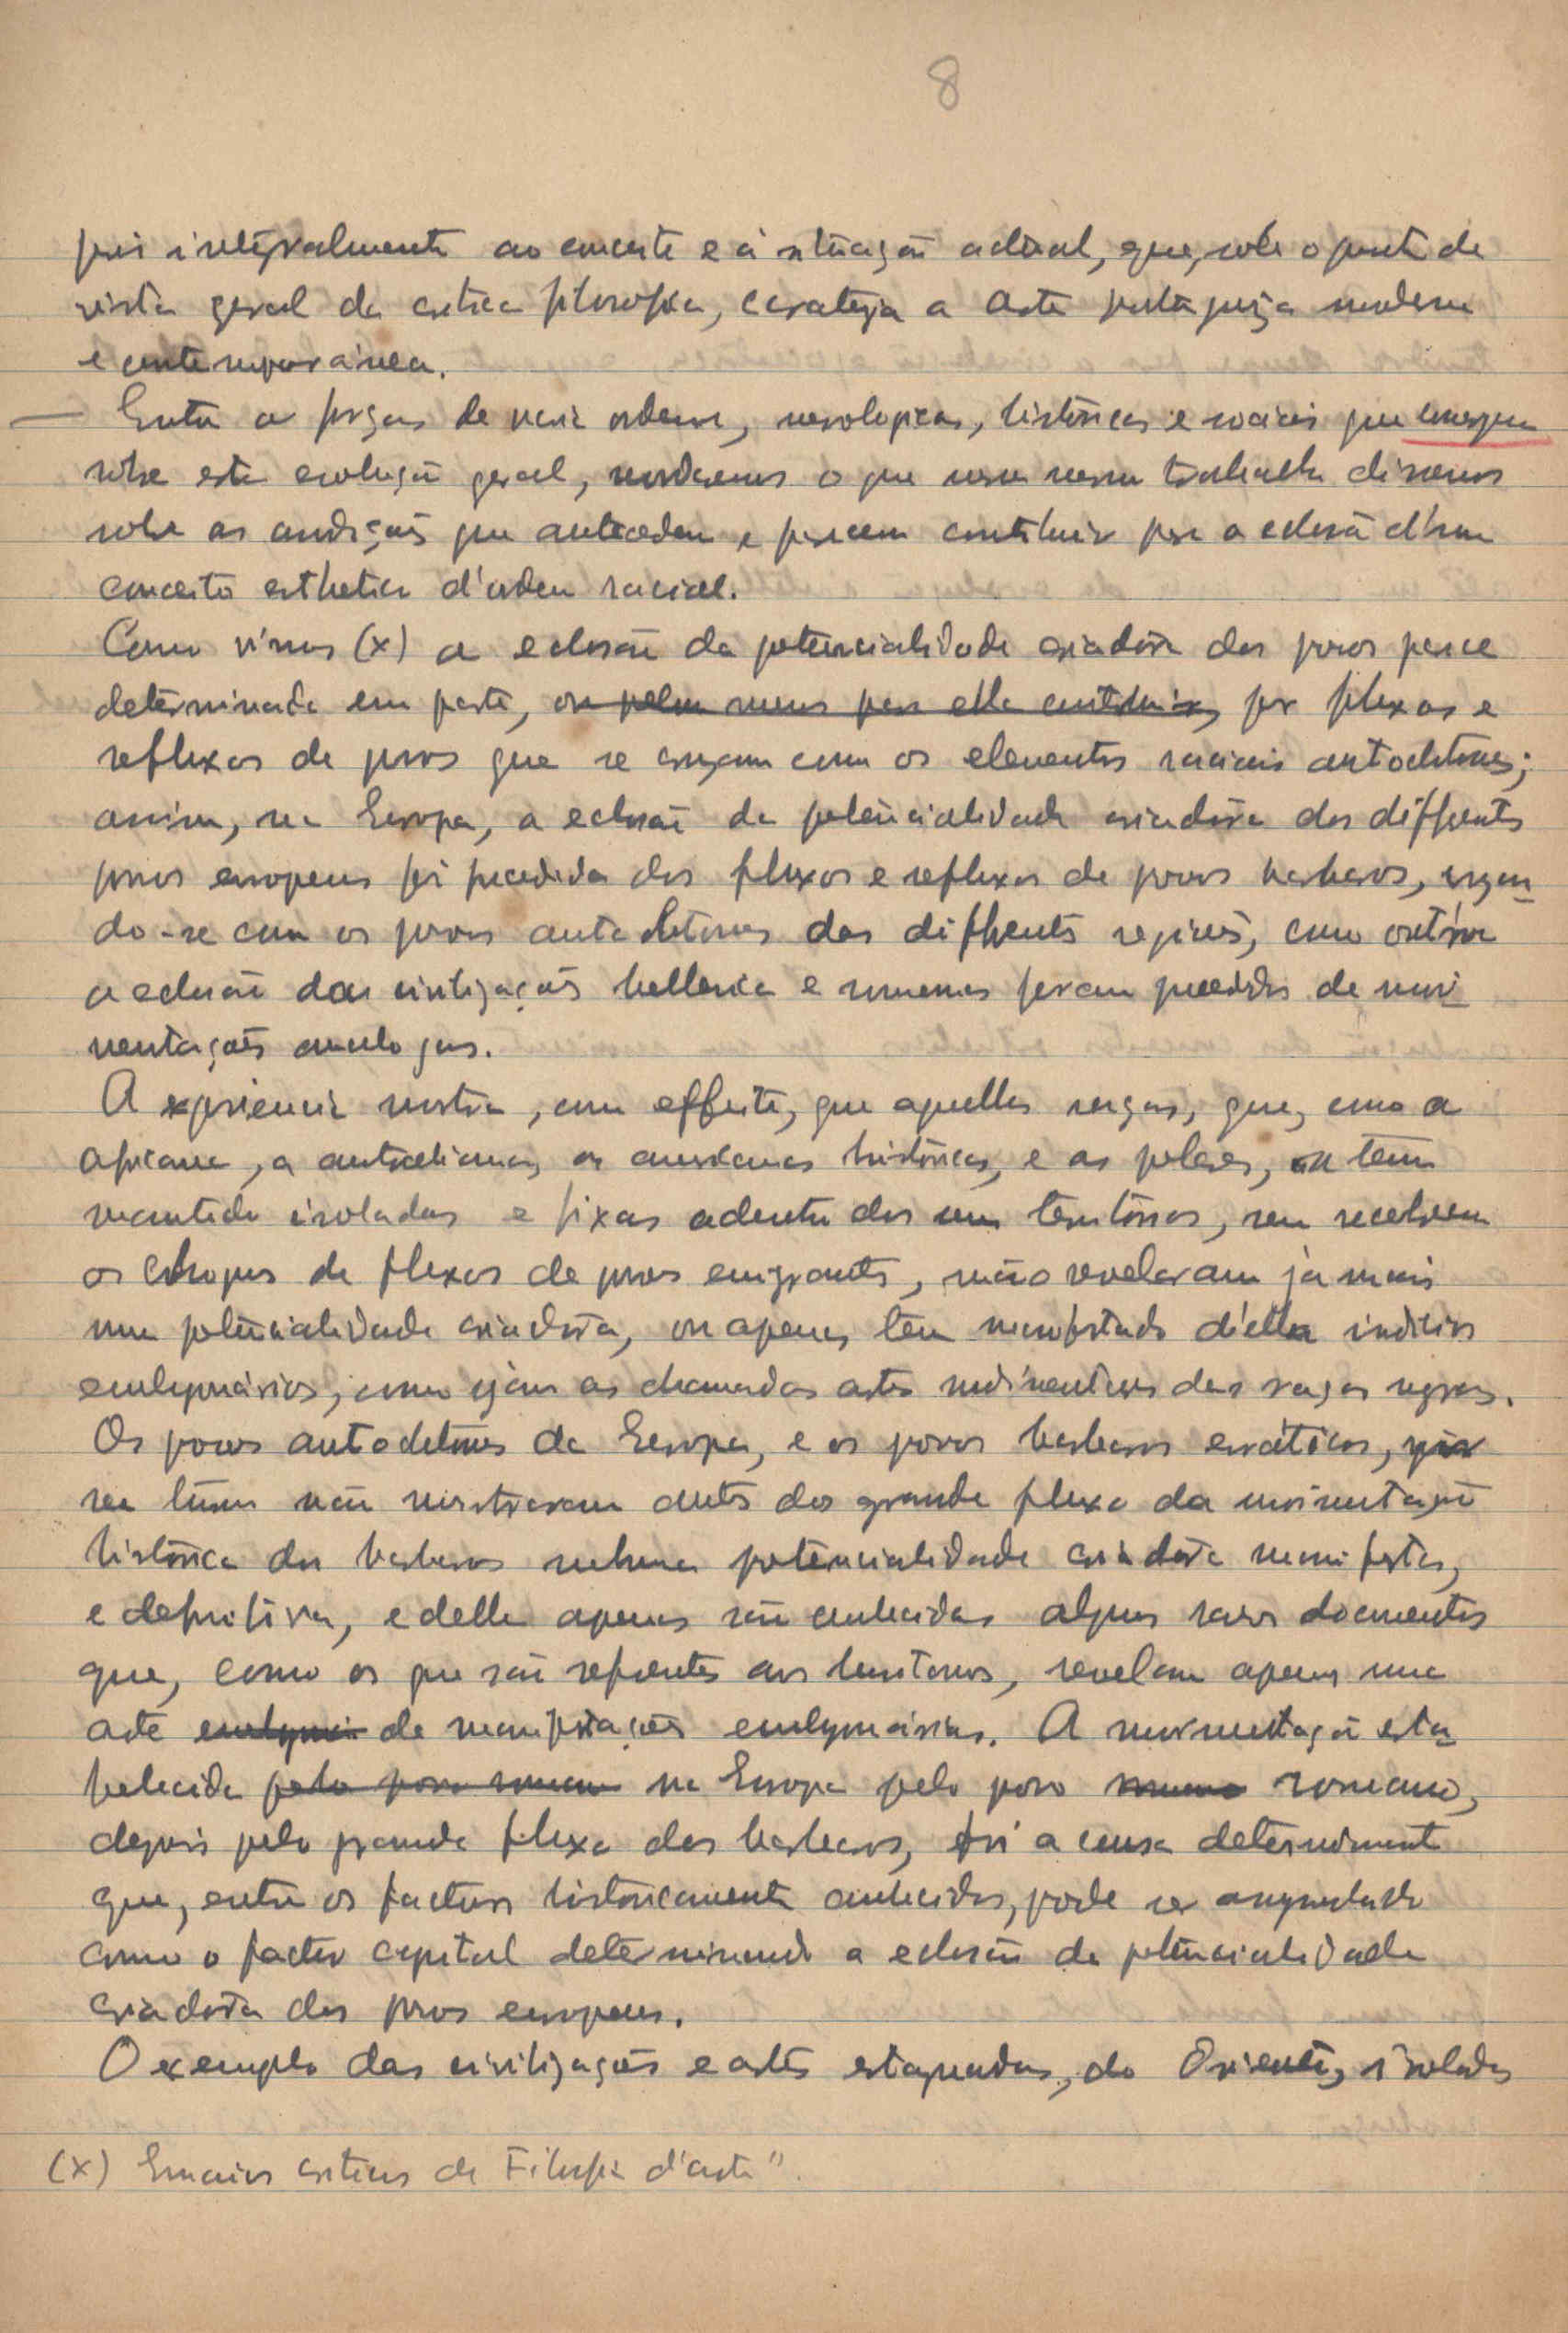 8
pois integralmente ao conceito e á situação actual, que, sob o ponto de
vista geral da critica filosofica, a arte portuguesa moderna
e contemporánea.
— Entre as forças de varia ordem, historicas e sociais que convergem
sobre esta evolução geral, o que n'esse nosso trabalho dissemos
sobre as condições que antecedem e parecem contribuir para a eclosão d'um
conceito esthetico d'ordem racial.
Como vimos (x) a eclosão da potencialidade criadora dos povos parece
determinada em parte, ou pelo menos para ella contribuir, por fluxos e
refluxos de povos que se cruzam com os elementos raciais autochtones;
assim, na Europa, a eclosão da potencialidade criadora dos differentes
povos europeus foi precedida dos fluxos e refluxos de povos barbaros, cruzan-
do-se com os povos autochtones das differentes regiões, como outróra
a eclosão das civilizações hellenica e romana foram precedidas de movi-
mentações analogas.
A experiencia mostra, com effeito, que aquellas raças, que, como a
africana, a australiana, as americanas históricas, e as polares, se tem
mantido isoladas e fixas adentro dos seus territórios, sem receberem
os choques de fluxos de povos emigrantes, não revelaram já mais
uma potencialidade criadora, ou apenas têm manifestado d'ella indicios
embryonários, como sejam as chamadas artes rudimentares das raças negras.
Os povos autochtones da Europa, e os povos barbaros erráticos,
não mostraram antes do grande fluxo da movimentação
histórica dos barbaros nenhuma potencialidade criadora manifesta,
e definitiva, e delle apenas são conhecidos alguns raros documentos
que, como os que são referentes aos lusitanos, revelam apenas uma
arte embryoni de manifestações embryonárias. A movimentação esta-
belecida pelo povo romano na Europa pelo povo romano romano,
depois pelo grande fluxo dos barbaros, foi a causa determinante
que, entre os factores historicamente conhecidos, pode ser
como o factor capital determinando a eclosão da potencialidade
criadora dos povos europeus.
O exemplo das civilizações e artes estagnadas, do Oriente, isoladas
(x) Ensaios criticos de Filosofia d'arte".